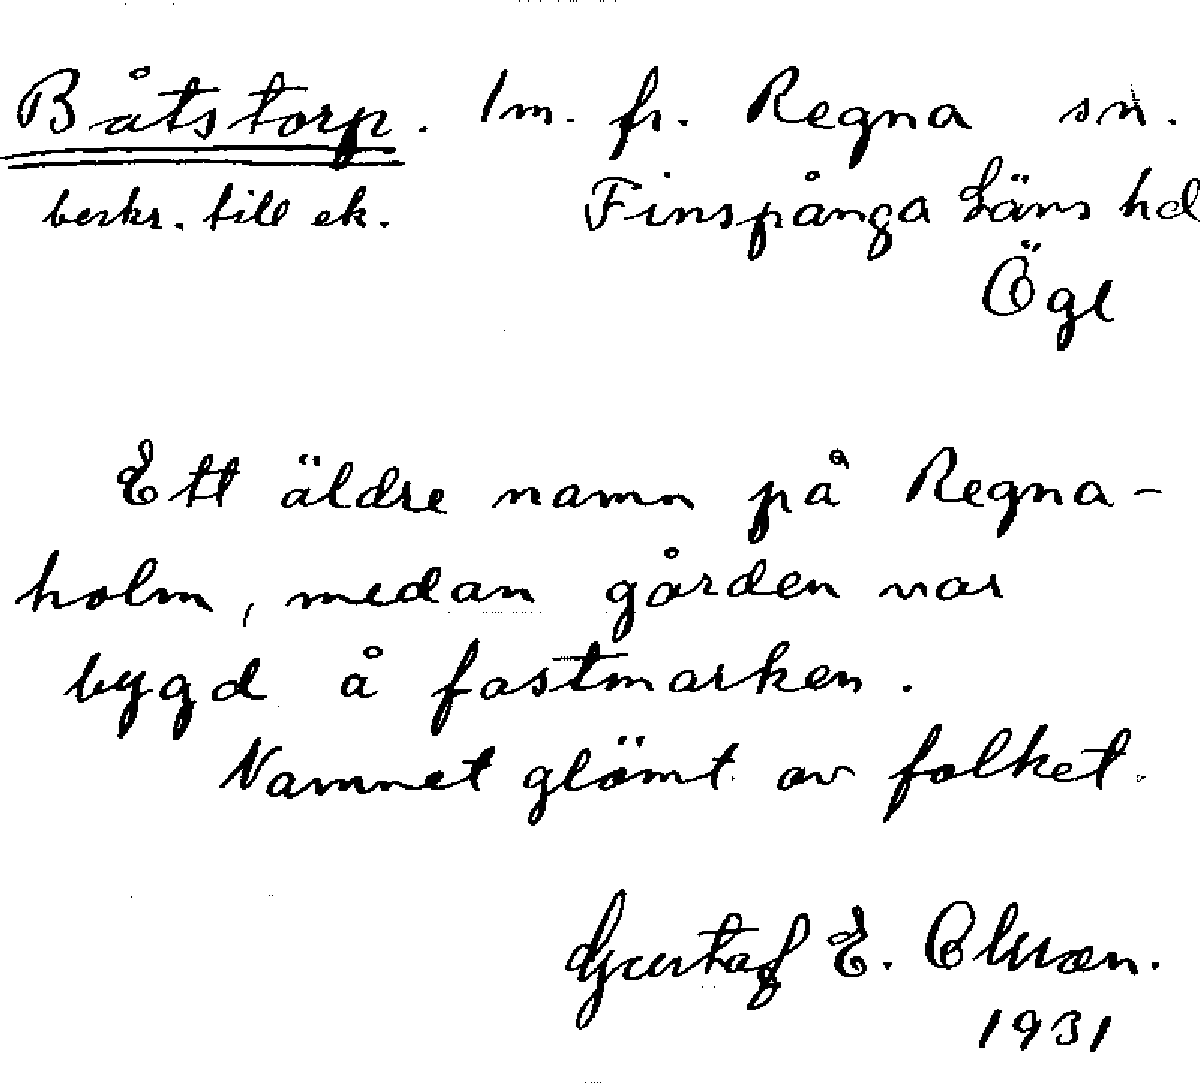 Båtstorp. 1m. fr. Regna sn.
beskr. till ek. Finspånga Läns hd
Ögl
Ett äldre namn på Regna-
holm, medan gården var
bygd å fastmarken.
Namnet glömt av folket.
Gustaf E. Olsson.
1931